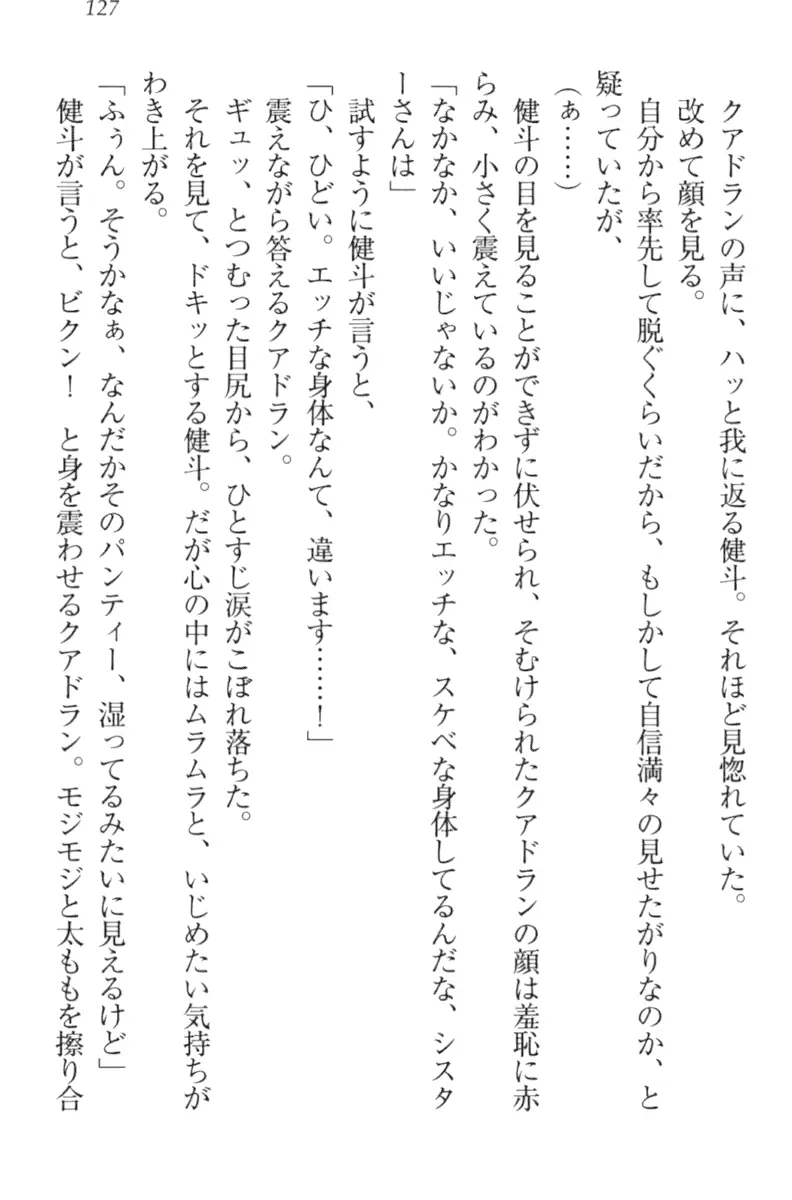 127
クアドランの声に、ハッと我に返る健斗。それほど見惚れていた。
改めて顔を見る。
自分から率先して脱ぐくらいだから、もしかして自信満々の見せたがりなのか、と
疑っていたが、
(ぁ……)
健斗の目を見ることができずに伏せられ、そむけられたクアドランの顔は羞恥に赤
らみ、小さく震えているのがわかった。
「なかなか、いいじゃないか。かなりエッチな、スケベな身体してるんだな、シスタ
ーさんは」
試すように健斗が言うと、
「ひ、ひどい。エッチな身体なんて、違います……!」
震えながら答えるクアドラン。
ギュッ、とつむった目尻から、ひとすじ涙がこぼれ落ちた。
それを見て、ドキッとする健斗。だが心の中にはムラムラと、いじめたい気持ちが
わき上がる。
「ふぅん。そうかなぁ、なんだかそのパンティー、湿ってるみたいに見えるけど」
健斗が言うと、ビクン! と身を震わせるクアドラン。モジモジと太ももを擦り合